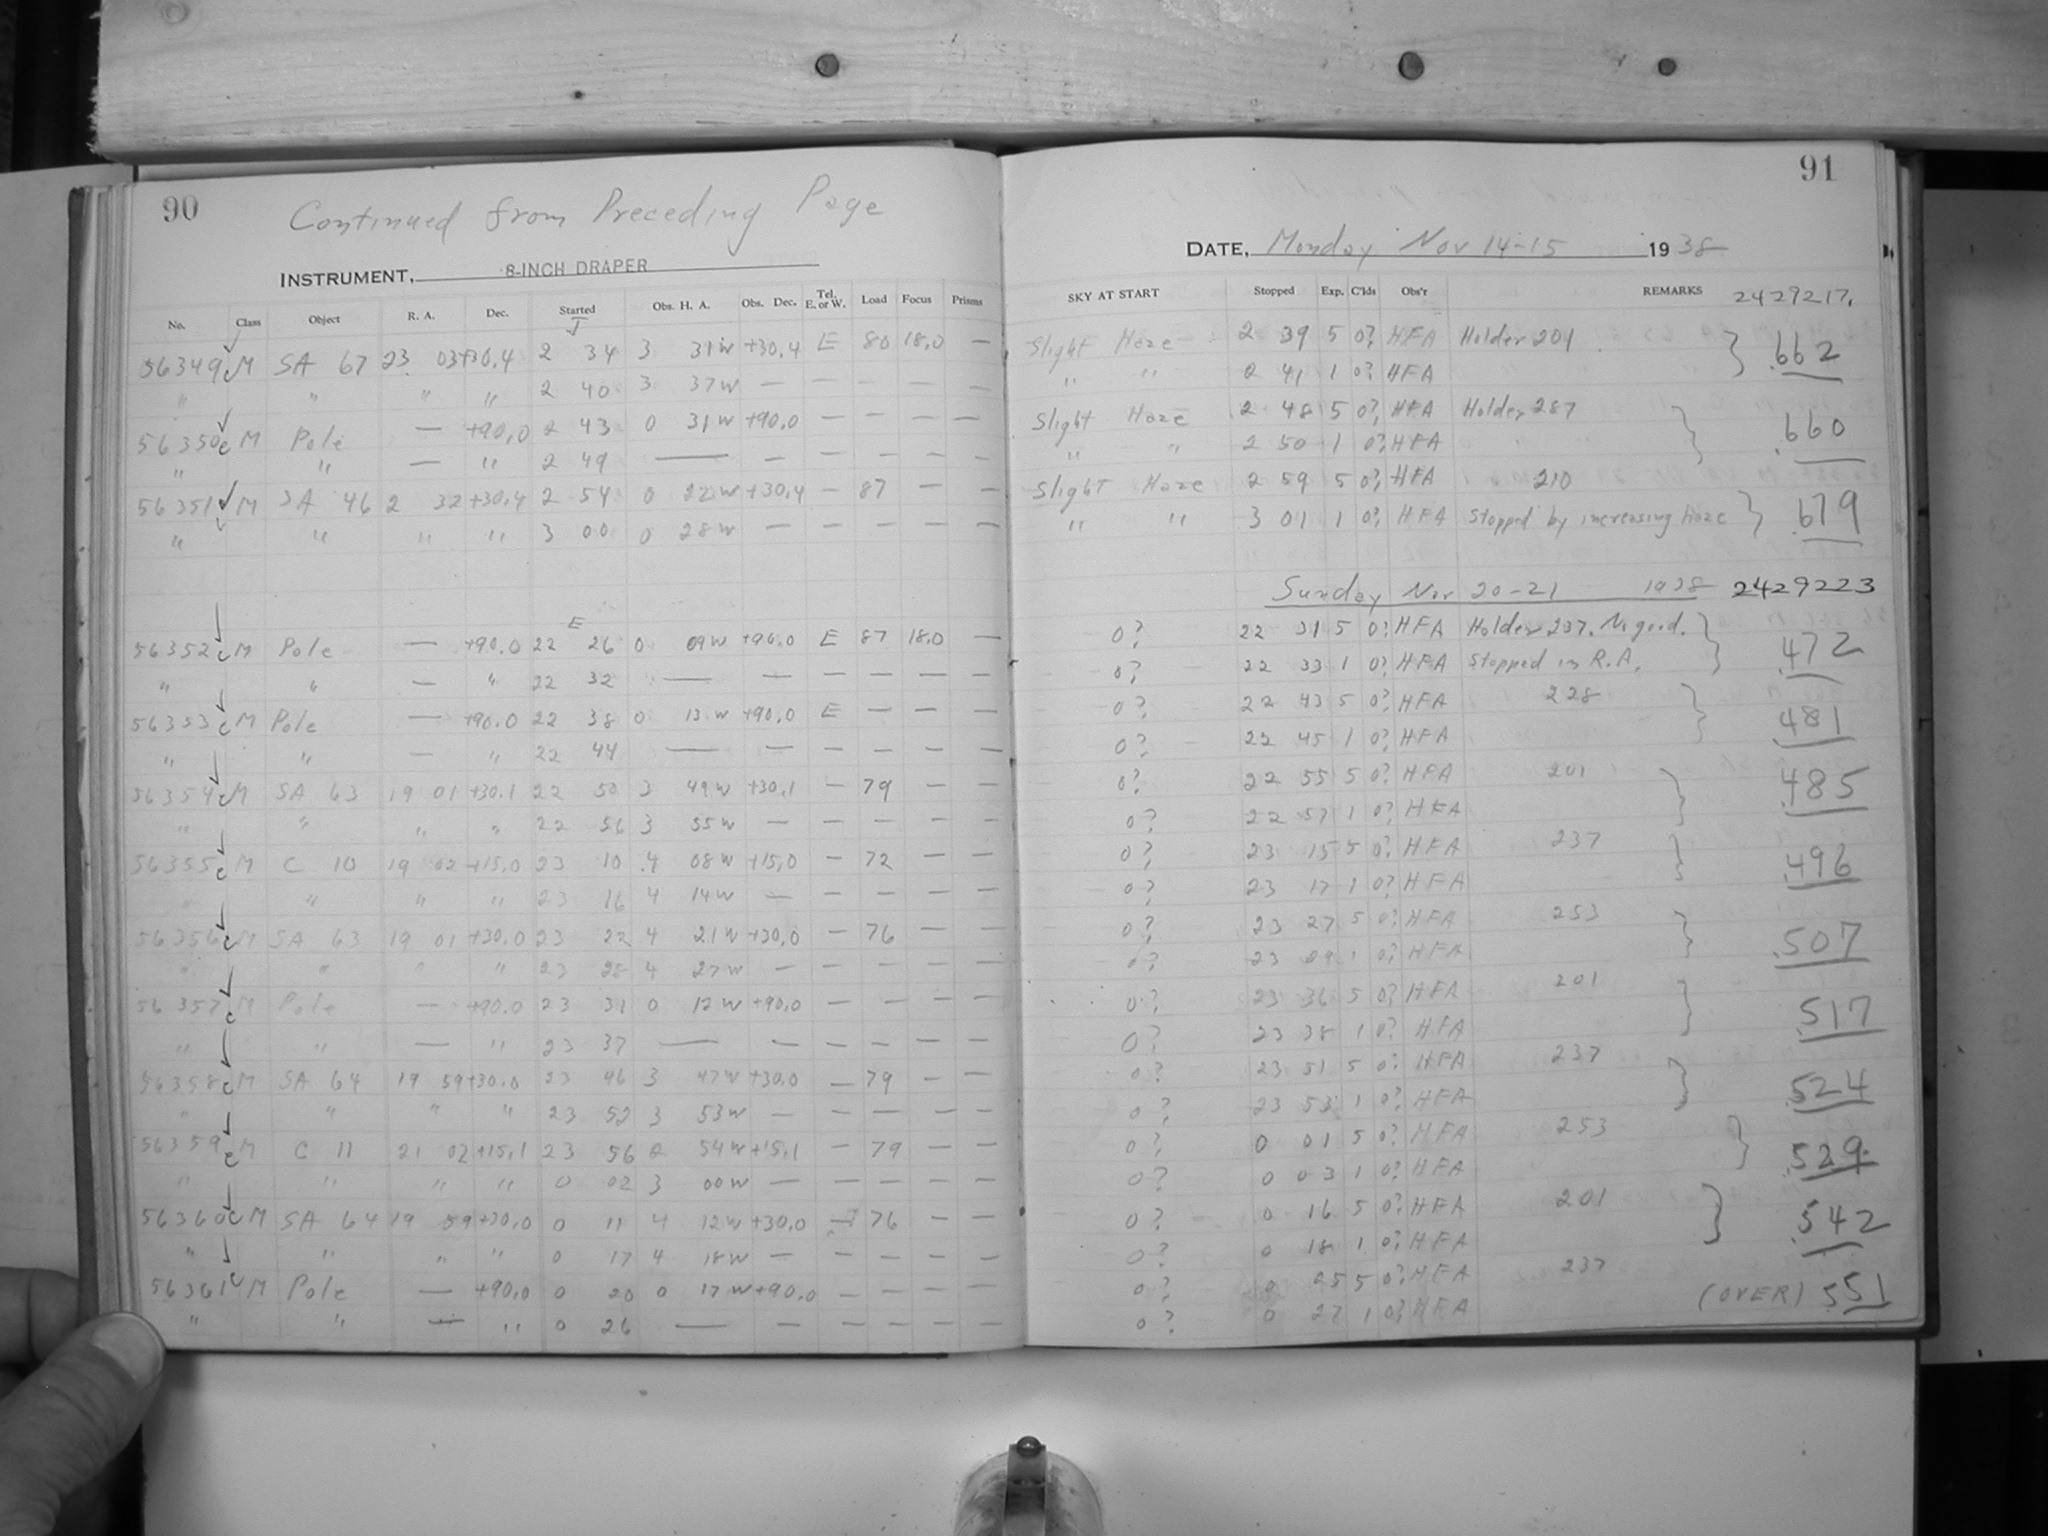 90
Continued from Preceding Page
INSTRUMENT, 8-INCH DRAPER
No. Class Object R. A. Dec. Started Obs. H. A. Obs. Dec. Tel. E. or W. Load Focus Prisms
56349 M SA 67 23 03 +30,4 2 34 3 31W +30,4 E 80 18,0 —
" " " " 2 40 3 37W — — — — —
56350 M Pole — +90,0 2 43 0 31W +90,0 — — — —
" " — " 2 49 — — — — — —
56351 M SA 46 2 32 +30,4 2 54 0 22W +30,4 — 87 — —
" " " " 3 00 0 28W — — — — —
E
56352 M Pole — +90.0 22 26 0 09W +90.0 E 87 18,0 —
" " — " 22 32 — — — — — —
56353 M Pole — +90.0 22 38 0 13W +90,0 E — — —
" " — " 22 44 — — — — — —
56354 M SA 63 19 01 +30.1 22 50 3 49W +30,1 — 79 — —
" " " " 22 56 3 55W — — — — —
56355 M C 10 19 02 +15,0 23 10 4 08W +15,0 — 72 — —
" " " " 23 16 4 14W — — — — —
56356 M SA 63 19 01 +30,0 23 22 4 21W +30,0 — 76 — —
" " " " 23 28 4 27W — — — — —
56357 M Pole — +90.0 23 31 0 12W +90,0 — — — —
" " — " 23 37 — — — — — —
56358 M SA 64 19 59 +30.0 23 46 3 47W +30,0 — 79 — —
" " " " 23 52 3 53W — — — — —
56359 M C 11 21 02 +15,1 23 56 2 54W +15,1 — 79 — —
" " " " 0 02 3 00W — — — — —
56360 M SA 64 19 59 +30,0 0 11 4 12W +30,0 — 76 — —
" " " " 0 17 4 18W — — — — —
56361 M Pole — +90,0 0 20 0 17W +90,0 — — — —
" " — " 0 26 — — — — — —
91
DATE, Monday Nov 14-15 1938
SKY AT START Stopped Exp. C'lds Obs'r REMARKS 2429217.
Slight Haze 2 39 5 0? HFA Holder 201 .662
" " 2 41 1 0? HFA
Slight Haze 2 48 5 0? HFA Holder 287 .660
" " 2 50 1 0? HFA
Slight Haze 2 59 5 0? HFA 210 .679
" " 3 01 1 0? HFA Stopped by increasing Haze
Sunday Nov 20-21 1938 2429223
0? 22 31 5 0? HFA Holder 237. No good. .472
0? 22 33 1 0? HFA Stopped in R.A.
0? 22 43 5 0? HFA 228 .481
0? 22 45 1 0? HFA
0? 22 55 5 0? HFA 201 .485
0? 22 57 1 0? HFA
0? 23 15 5 0? HFA 237 .496
0? 23 17 1 0? HFA
0? 23 27 5 0? HFA 253 .507
0? 23 29 1 0? HFA
0? 23 36 5 0? HFA 201 .517
0? 23 38 1 0? HFA
0? 23 51 5 0? HFA 237 .524
0? 23 53 1 0? HFA
0? 0 01 5 0? HFA 253 .529
0? 0 03 1 0? HFA
0? 0 16 5 0? HFA 201 .542
0? 0 18 1 0? HFA
0? 0 25 5 0? HFA 237
0? 0 27 1 0? HFA (OVER) .551